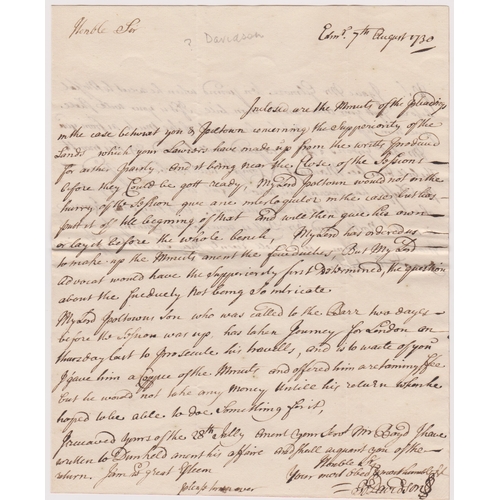 Honble Sir
? Davidson
Edinr. 7th August 1730
Inclosed are the Minuts of the pleadings
in the case betwixt you & Poltown concerning the Superiority of the
Lands which your Lawiers have made up from the writts produced
for either party And it being near the Close of the Sessions
before they Could be gott ready, My Lord Poltown would not in the
hurry of the Session give ane interloquitor in the case but has
putt it off till begining of that and will then give his own
or lay it before the whole bench, My Lord has ordered us
to make up the Minuts anent the feueduties, But My Lord
Advocat would have the Superiority first Determined, the question
about the feuduty not being So intricate
My Lord Poltowns Son who was called to the Barr two days
before the Session was up has taken Journey for London on
thursday last to prosecute his travells, and is to waite of you
I gave him a Coppie of the Minuts and offered him a retaining fee
but he would not take any Money Untill his return when he
hoped to be able to doe Something for it,
I received yours of the 28th July anent your Servt Mr Boyd I have
written to Dunhold anent his affaire and shall acquant you of the
return. I am wt great Esteem
Honble Sir
Your most obedt humble Sert
please turn over
Davidson